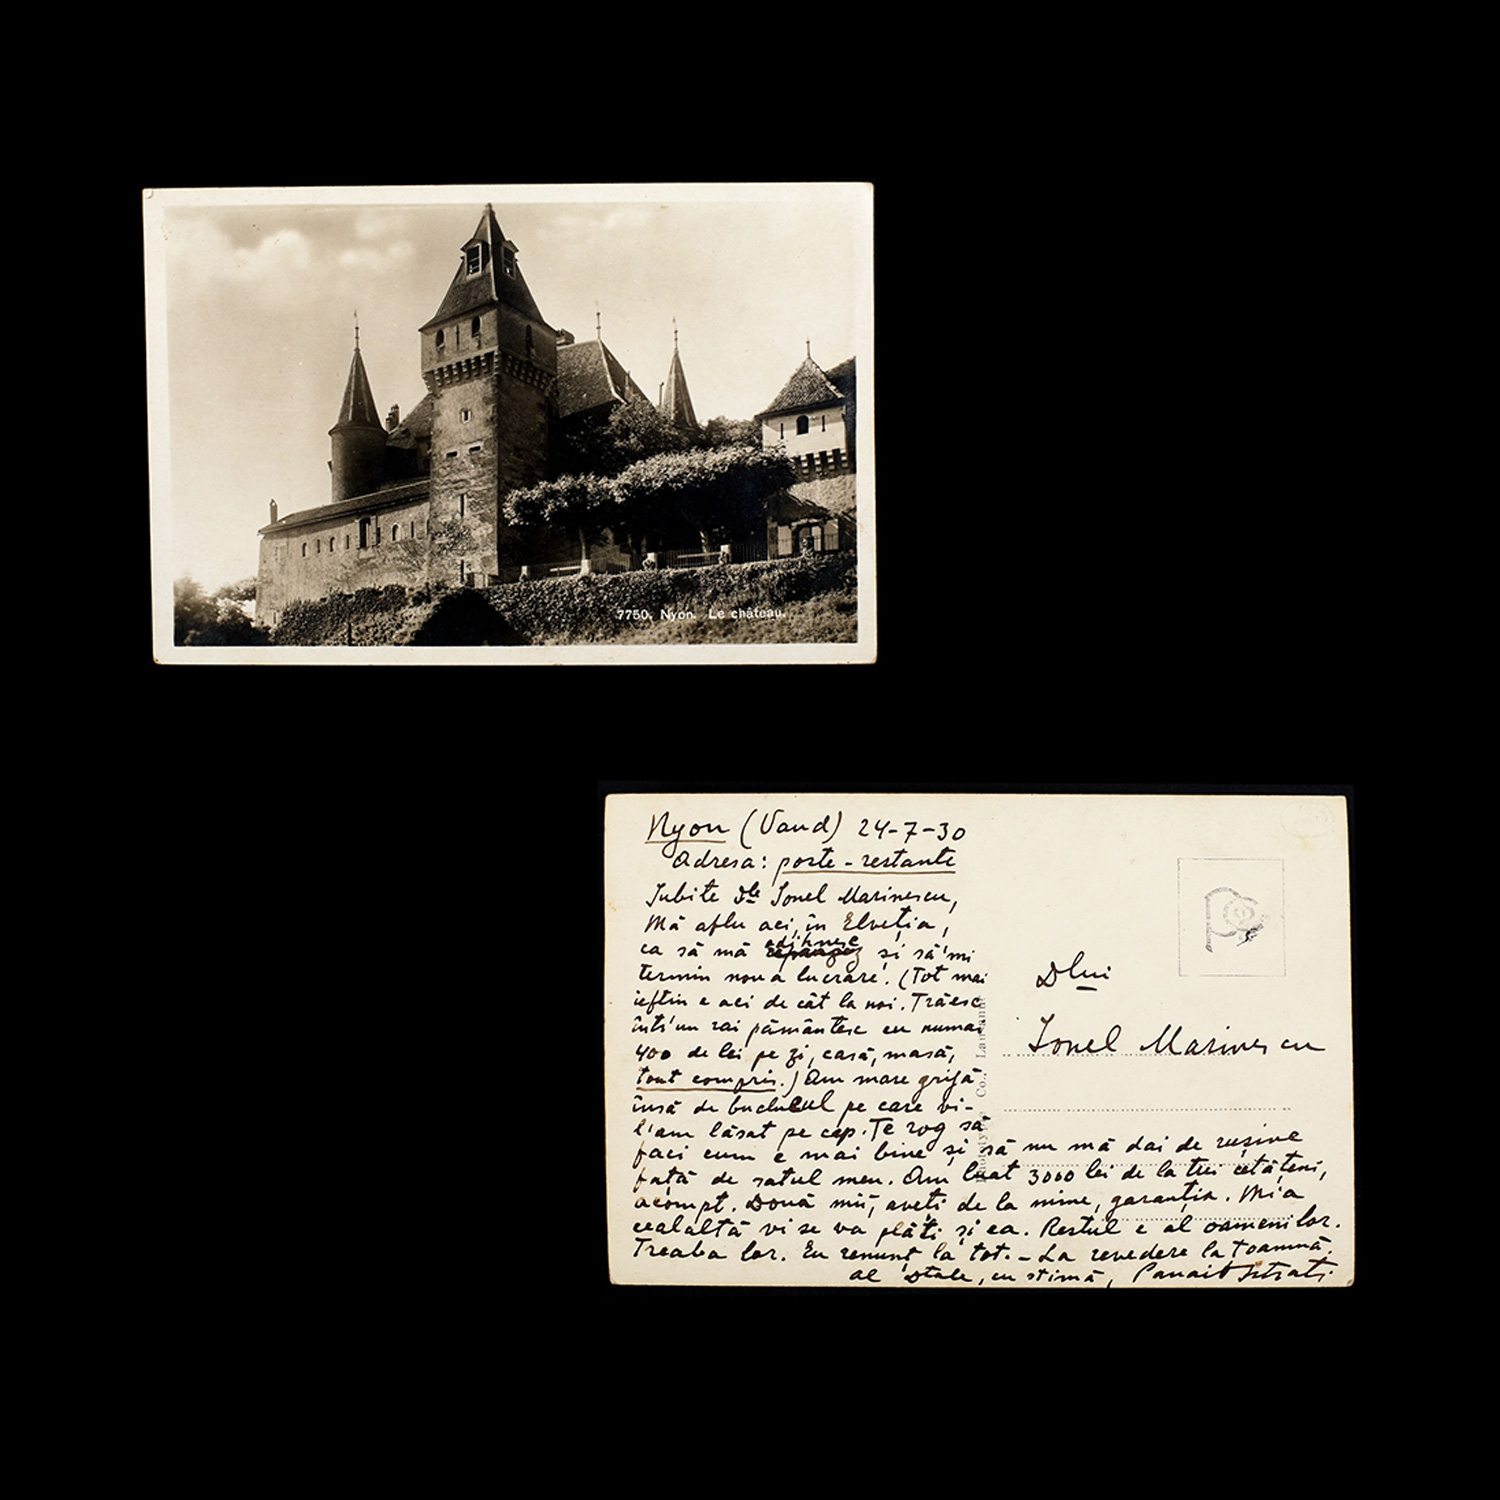 7750. Nyon. Le château.
Nyon (Vaud) 24-7-30
Adresa: poste-restante
Iubite Dle Ionel Marinescu,
Mă aflu aci, în Elveția,
ca să mă odihnesc și să'mi
termin noua lucrare. (Tot mai
ieftin e aci de cât la noi. Trăesc
într'un rai pământesc cu numai
400 de lei pe zi, casă, masă,
tout compris.) Am mare grijă
însă de buclucul pe care vi-
l'am lăsat pe cap. Te rog să
faci cum e mai bine și să nu mă dai de rușine
față de satul meu. Am luat 3000 lei de la trei cetățeni,
acompt. Două mii, aveți de la mine, garanția. Mia
cealaltă vi se va plăti și ea. Restul e al oamenilor.
Treaba lor. Eu renunț la tot. - La revedere la toamnă.
al Dtale, cu stimă, Panait Istrati
Dlui
Ionel Marinescu
Co., Lausanne